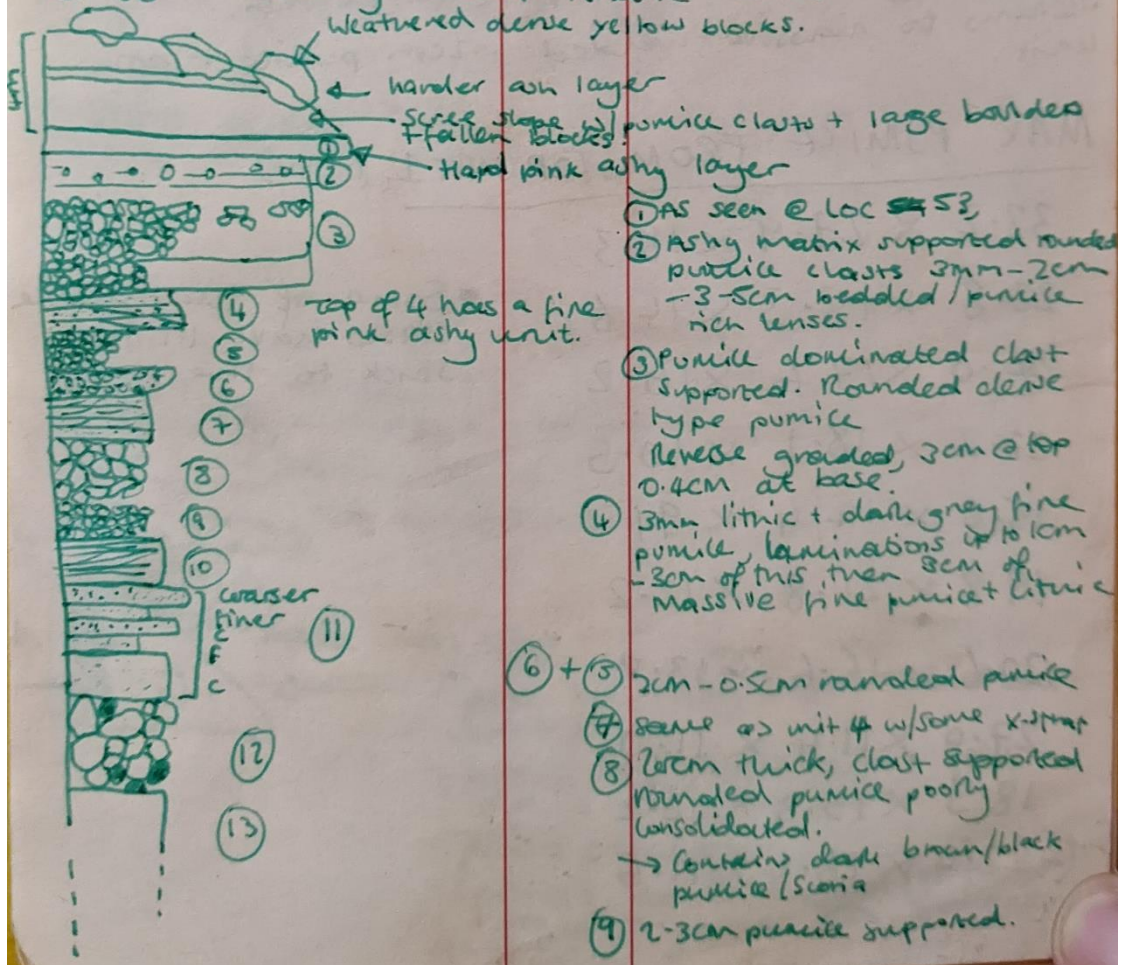 Weathered dense yellow blocks.
harder ash layer
scree slope w/ pumice clasts + large boulders
+ fallen blocks.
Hard pink ashy layer
①
②
③
④
Top of 4 has a fine
pink ashy unit.
⑤
⑥
⑦
⑧
⑨
⑩
coarser
finer
C
F
C
⑪
⑫
⑬
① As seen @ Loc 53,
② Ashy matrix supported rounded
pumice clasts 3mm-2cm
-3-5cm bedded/pumice
rich lenses.
③ Pumice dominated clast
supported. Rounded dense
type pumice
Reverse graded, 3cm @ top
0.4cm at base.
④ 3mm lithic + dark grey fine
pumice, laminations up to 1cm
-3cm of this then 8cm of
massive fine pumice + lithic
⑥ + ⑤ 2cm-0.5cm rounded pumice
⑦ same as unit 4 w/some x-strat
⑧ 20cm thick, clast supported
rounded pumice poorly
consolidated.
→ Contains dark brown/black
pumice/scoria
⑨ 2-3cm pumice supported.